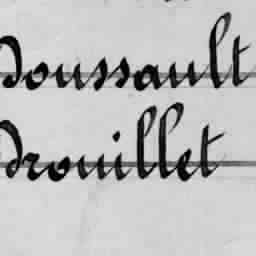 Doussault
Drouillet